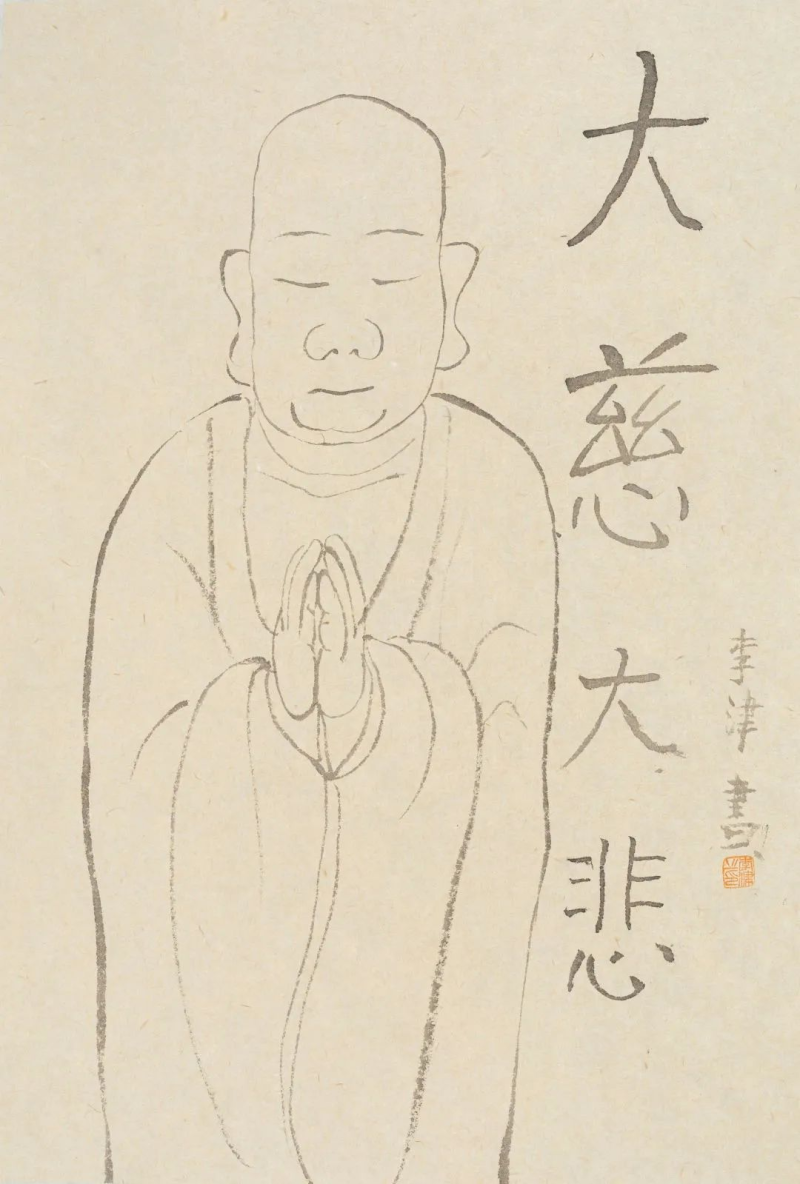 大慈大悲
李津畫